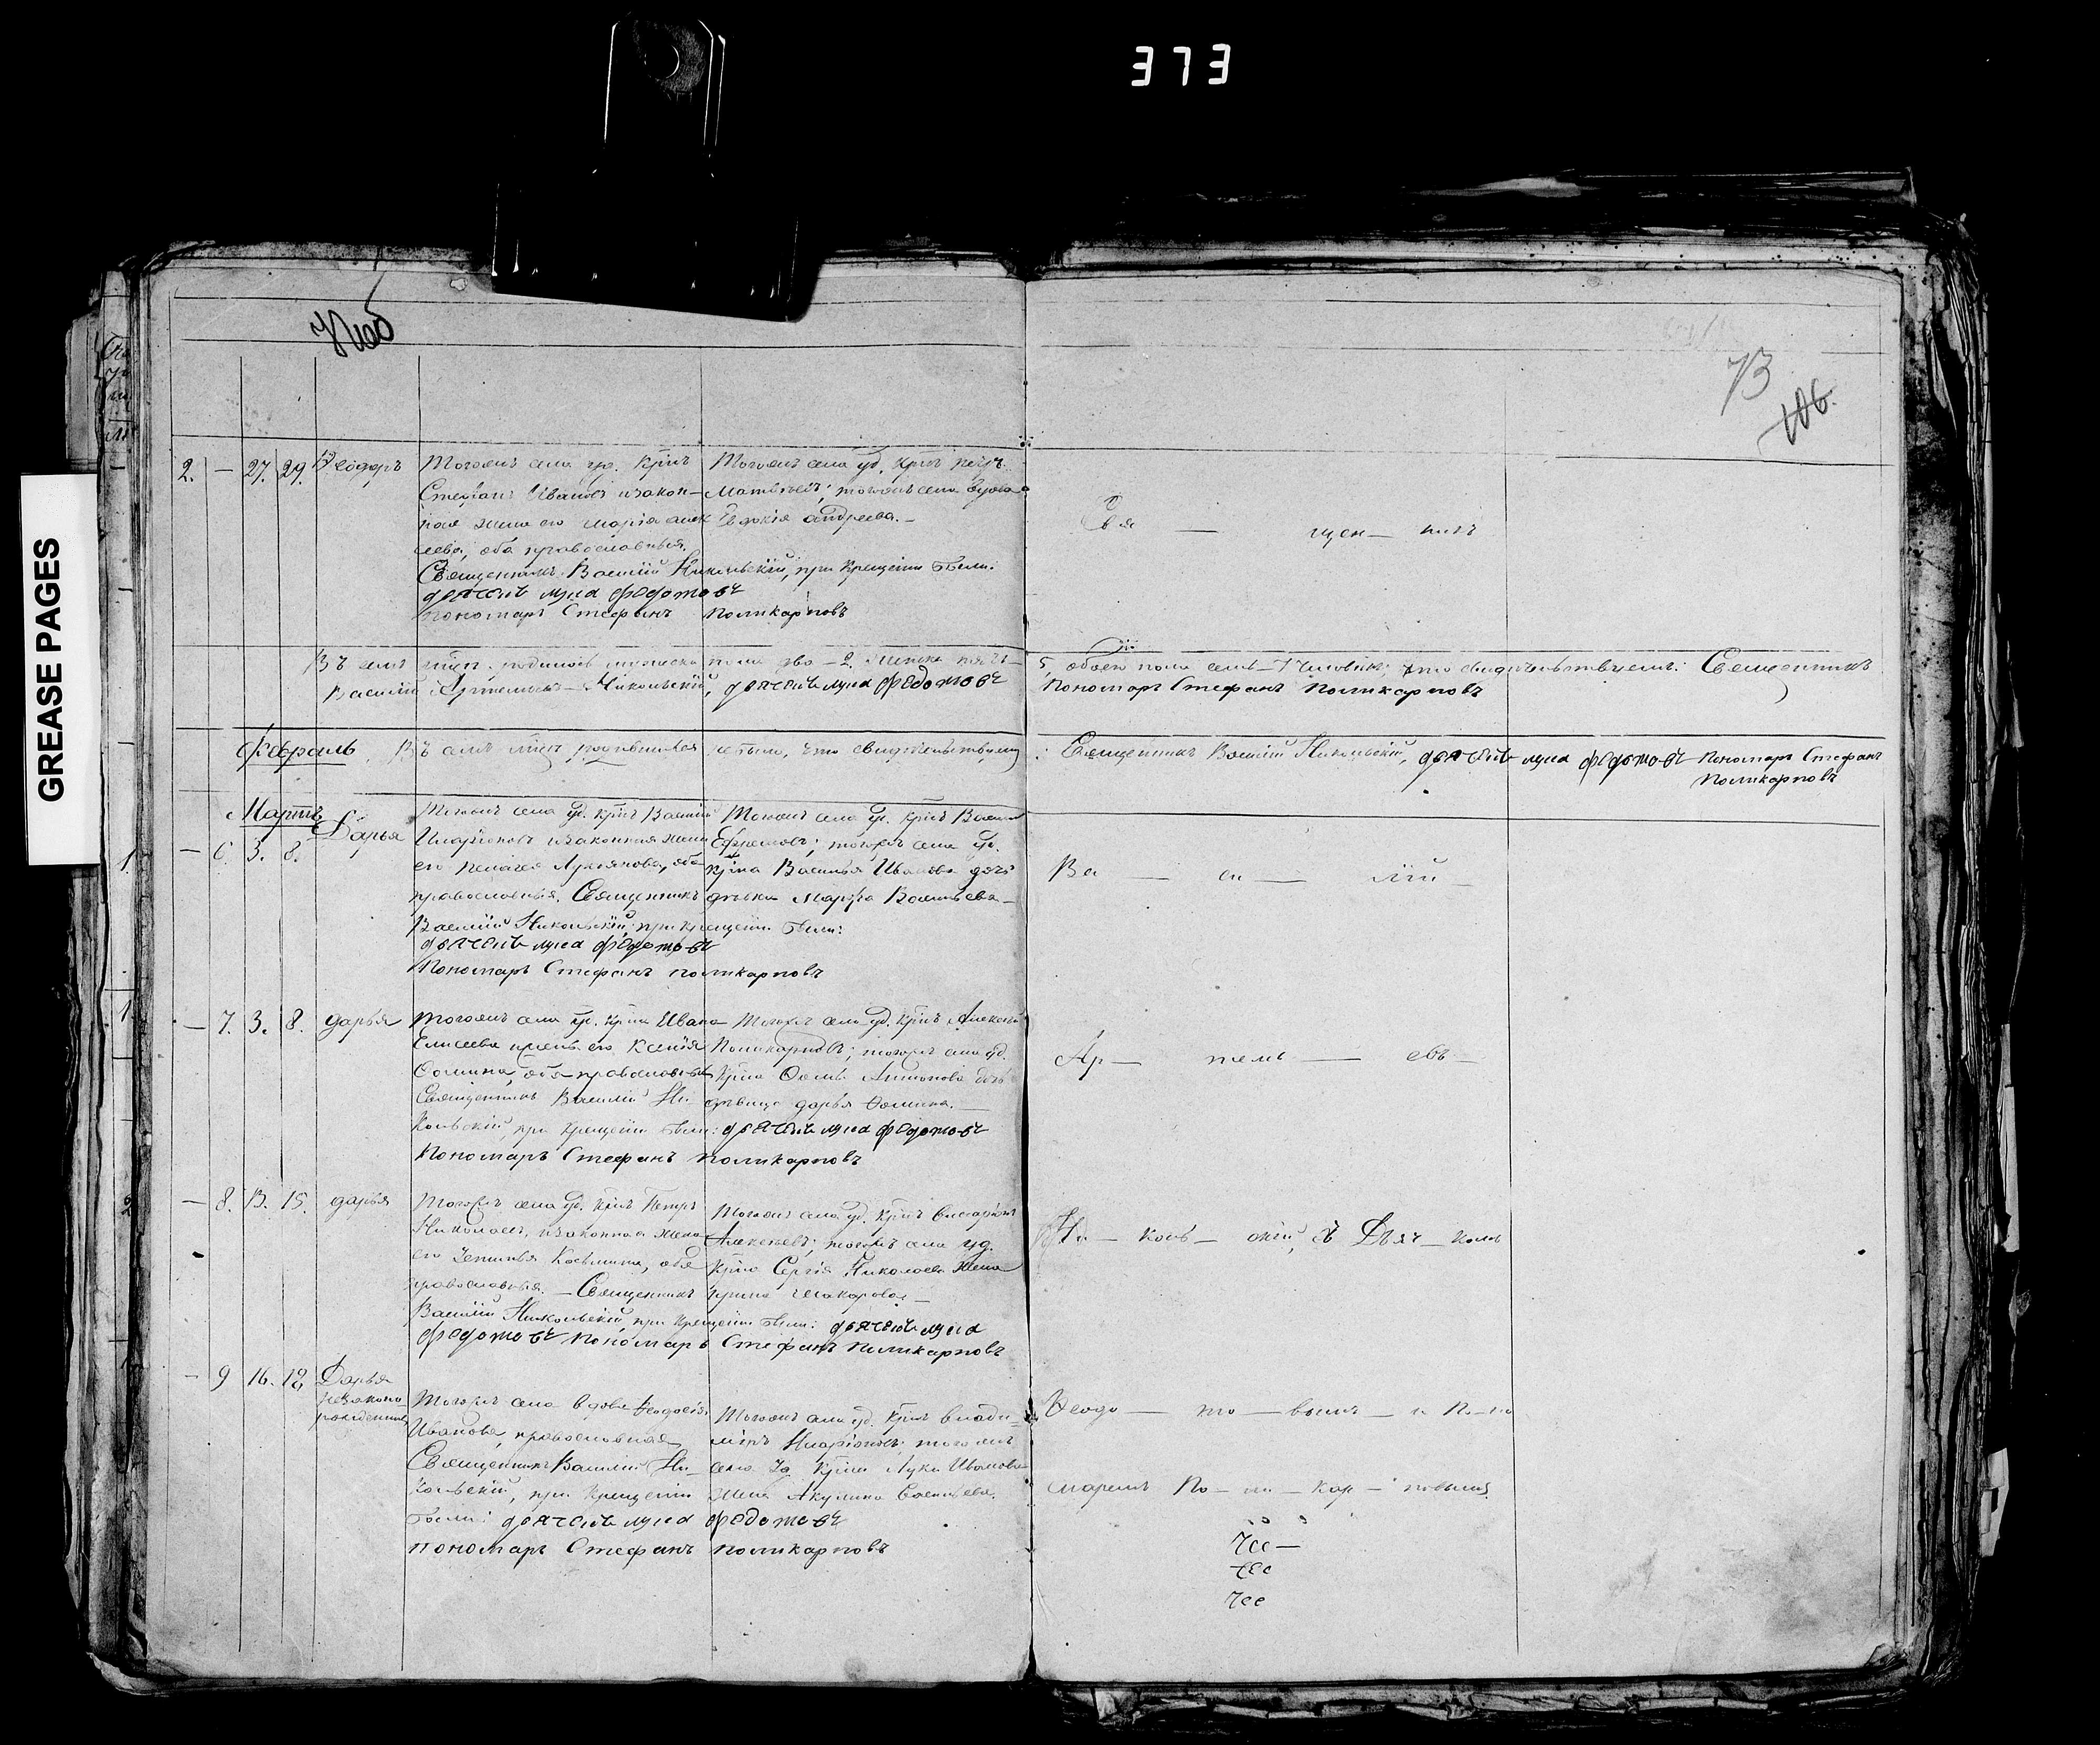 373
GREASE PAGES
73
106.
2. — 27. 29. Ѳеодоръ
Тогожъ села уд. крнъ
Стефанъ Ивановъ и закон-
ная жена его Марія Алек
сеева, оба православныя.
Священникъ Василій Никольскій, при крещеніи были:
дьячекъ лука федотовъ
пономарь Стефанъ поликарповъ
Тогожъ села уд. крнъ петръ
Матвѣевъ; тогожъ села вдова
Евдокія андреева.—
Свя — щен — никъ
Въ семъ мцѣ родилось мужеска пола два — 2, женска пять —
5, обоего пола семь — 7 человѣкъ; что свидѣтельствуемъ: Священникъ
Василій Артемьевъ — Никольскій, дьячекъ лука федотовъ
пономарь Стефанъ поликарповъ
Февраль. Въ семъ мцѣ родившихся не было, что свидѣтельствуемъ
: Священникъ Василій Никольскій, дьячекъ лука федотовъ пономарь Стефанъ
поликарповъ
Мартъ
1.
— 6. 3. 8. Дарья
Тогожъ села уд. крнъ Василій
Иларіоновъ и законная жена
его Пелагея Лукьянова, оба
православныя. Священникъ
Василій Никольскій, при крещеніи были:
дьячекъ лука федотовъ
Пономарь Стефанъ поликарповъ
Тогожъ села уд. крнъ Василій
Ефремовъ; тогожъ села уд.
крна Василья Иванова дочь
дѣвка Марфа Васильева —
Ва — си — лій —
1
— 7. 3. 8. дарья
Тогожъ села уд. крна Ивана
Елисеева жена его Ксенія
Ѳомина, оба православныя
Священникъ Василій Ни-
кольскій, при крещеніи были: дьячекъ лука федотовъ
Пономарь Стефанъ поликарповъ
Тогожъ села уд. крнъ Алексѣй
Поликарповъ; тогожъ села уд.
крна Ѳомы Антонова дочь
дѣвица дарья Ѳомина. —
Ар — темь — евъ —
2
— 8. 13. 15. дарья
Тогожъ села уд. крнъ Петръ
Николаевъ, и законная жена
его Козьмина, оба
православныя. — Священникъ
Василій Никольскій, при крещеніи были: дьячекъ лука
федотовъ пономарь Стефанъ поликарповъ
Тогожъ села уд. крнъ
Алексѣевъ; тогожъ села уд.
крна Сергія Николаева жена
Ирина Макарова —
Ни — коль — скій, съ Дьяч — комъ
— 9 16. 19, Дарья
незаконно
рожденная
Тогожъ села вдова Ѳеодосія
Иванова, православная
Священникъ Василій Ни-
кольскій, при крещеніи
были: дьячекъ лука федотовъ
пономарь Стефанъ поликарповъ
Тогожъ села уд. крнъ влади-
міръ Иларіоновъ; тогожъ
села уд. крна Луки Иванова
жена Акулина Васильева.
Ѳеодо — то — вымъ — и По-но
маремъ По — ли — кар — повымъ